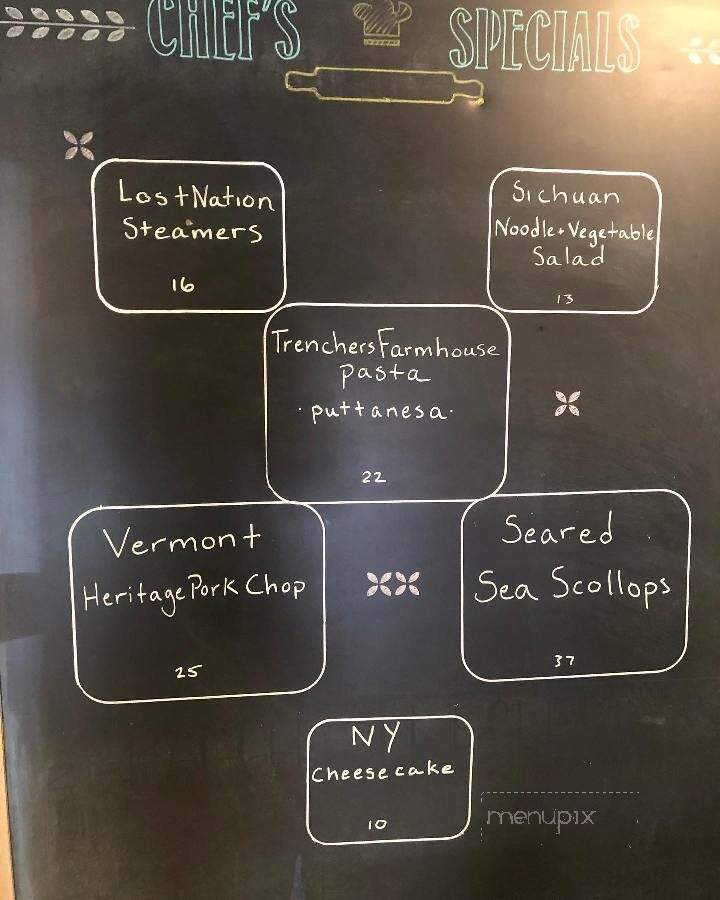 CHEF'S SPECIALS
Lost Nation
Steamers
16
Sichuan
Noodle + Vegetable
Salad
13
Trenchers Farmhouse
pasta
· puttanesa ·
22
Vermont
Heritage Pork Chop
25
Seared
Sea Scollops
37
NY
Cheesecake
10
menupix